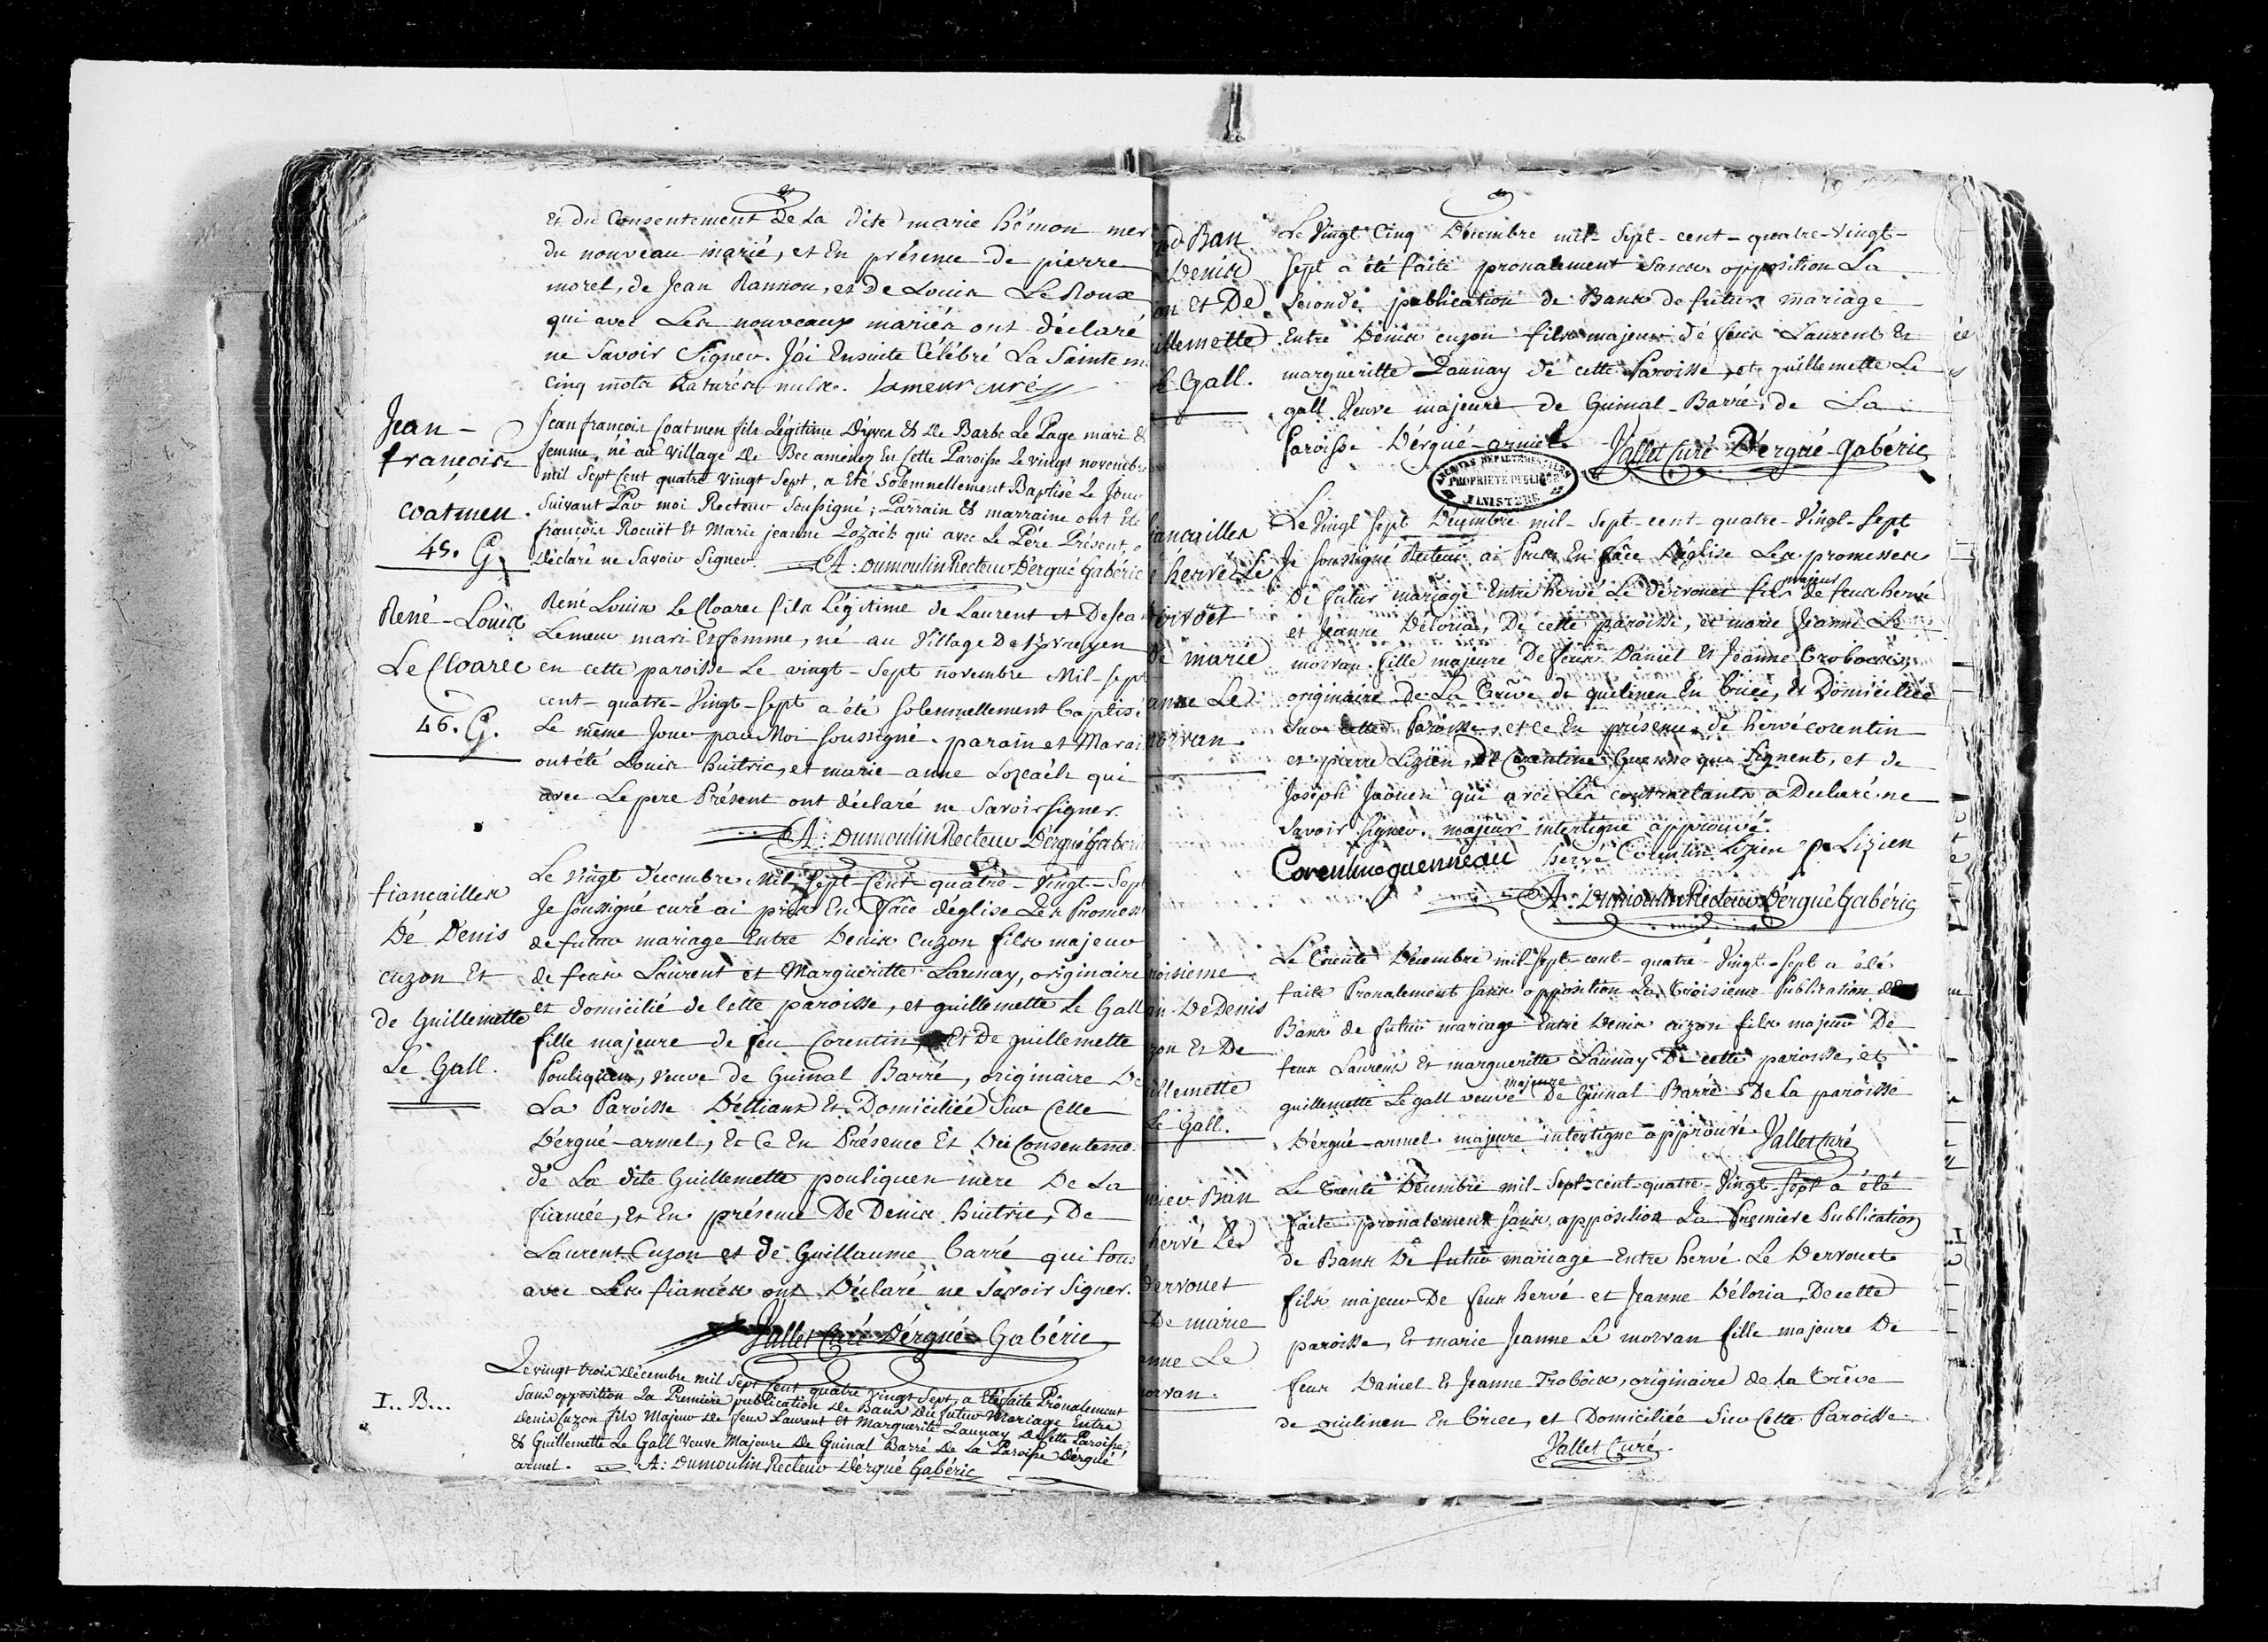 Et du Consentement De La dite marie hémon mer
du nouveau marié, et En présence de pierre
morel, de Jean Rannou, et de Louis Le Roux
qui avec Les nouveaux mariés ont déclaré
ne Savoir Signer. J'ai Ensuite Célébré La Sainte m
cinq mots raturés nuls. Lameur curé
Jean-
françois
coatmen.
45. G.
Jean françois Coatmen fils Légitime D'yves & de Barbe Le Page mari &
femme, né au village de Bec amenez En Cette Paroisse Le vingt novembre
mil Sept Cent quatre vingt Sept, a Eté Solemnellement Baptisé Le Jour
Suivant Par moi Recteur Soussigné; Parrain & marraine ont Eté
françois Rocuet Et Marie jeanne Lozach qui avec Le Père Présent, o
Déclaré ne Savoir Signer. A: Dumoulin Recteur D'ergué Gabéric
René-Louis
Le Cloarec
46. G.
René Louis Le Cloarec fils Légitime de Laurent et De Jean
Lemeur mari Et femme, né au Village De
en cette paroisse Le vingt-Sept novembre Mil-Sept
cent-quatre-Vingt-Sept a été Solemnellement baptisé
Le même Jour par Moi Soussigné. parain et Marai
ont été Louis huitric, et marie-anne Lozeach qui
avec Le pere Présent ont déclaré ne Savoir Signer.
A: Dumoulin Recteur D'ergué Gabéri
fiancailles
Dé Denis
cuzon Et
de Guillemette
Le Gall.
Le Vingt Decembre Mil-Sept Cent-quatre-Vingt-Sept
Je Soussigné curé ai pris En Face d'église Les Promess
de futur mariage Entre Denis Cuzon fils majeur
de feus Laurent et Margueritte Launay, originaire
et domicilié de Cette paroisse, et guillemette Le Gall
fille majeure de feu Corentin, Et De guillemette
Pouliquen, veuve de Guinal Barré, originaire De
La Paroisse D'Elliant Et Domiciliée Sur Celle
D'ergué-armel, Et Ce En Présence Et Du Consenteme
de La dite Guillemette pouliquen mere De La
fiancée, Et En présence De Denis huitric, De
Laurent Cuzon et de Guillaume barré qui tous
avec Les fiancés ont Déclaré ne Savoir Signer.
Vallet Curé D'ergué-Gabéric
I..B...
Le vingt trois Décembre mil Sept Cent quatre vingt Sept, a Eté faite Prônalement
Sans opposition La Premiere publication De Bans Du futur Mariage Entre
Denis Cuzon fils Majeur de feus Laurent Et Marguerite Launay De Cette Paroisse,
& Guillemette Le Gall veuve Majeure De Guinal Barré De La Paroisse D'ergué
armel. A: Dumoulin Recteur D'ergué Gabéric
nd Ban
Denis
on Et De
illemette
e Gall.
Le Vingt Cinq Décembre mil-Sept-cent-quatre-Vingt-
Sept a été faite pronalement Sans opposition La
Seconde publication de Bans de futur mariage
Entre Denis cuzon fils majeur de feus Laurent Et
margueritte Launay de cette Paroisse, et guillemette Le
gall Veuve majeure de Guinal-Barré, de La
Paroisse D'ergué-armel. Vallet Curé D'ergué-Gabéric
ARCHIVES DEPARTEMENTALES
PROPRIETE PUBLIQUE
FINISTERE
iancailles
e hervé Le
ervoët
de marie
anne Le
orvan.
Le Vingt Sept Décembre mil-Sept-cent-quatre-Vingt-Sept
Je Soussigné Recteur ai Pris En face D'église Les promesses
De futur mariage Entre hervé Le Dervouet fils majeur de feus hervé
et Jeanne Déloria, De cette paroisse, et marie Jeanne Le
morvan fille majeure De feus Daniel Et Jeanne Troboas,
originaire de La Trêve de quilinen En briec, Et Domiciliée
Sur Cette Paroisse, et ce En présence de hervé corentin
et pierre Lizien, De Corentine Guenno qui Signent, et de
Joseph Jaouen qui avec Les contractants a Declaré ne
Savoir Signer. majeur interligne approuvé.
Corentine guenneau hervé Corentin Lizien P. Lizien
A: Dumoulin Recteur D'ergué Gabéric
roisieme
an De Denis
zon Et De
illemette
Le Gall.
Le Trente Décembre mil Sept-cent-quatre-Vingt-Sept a été
faite Pronalement Sans opposition La Troisieme Publication de
Bans de futur mariage Entre Denis cuzon fils majeur De
feus Laurent Et margueritte Launay De cette paroisse, et
guillemette Le gall veuve majeure De Guinal Barré De La paroisse
D'ergué-armel. majeure interligne approuvé. Vallet Curé
mier Ban
hervé Le
dervouet
De marie
anne Le
orvan.
Le Trente Décembre mil-Sept-cent-quatre-Vingt-Sept a été
faite pronalement Sans opposition La Premiere Publication
de Bans De futur mariage Entre hervé Le Dervouet
fils majeur De feus hervé et Jeanne Déloria, De cette
paroisse, Et marie Jeanne Le morvan fille majeure De
feus Daniel Et Jeanne Troboas, originaire de La Trêve
de Quilinen En briec, et Domiciliée Sur Cette Paroisse.
Vallet Curé.